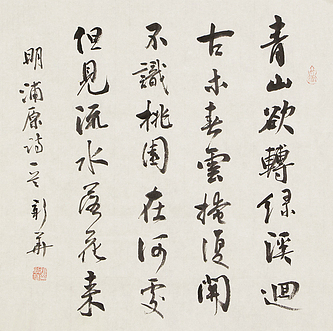 青山欲轉綠溪迴
古木春雲掩復開
不識桃園在何處
但見流水落花来
明浦原詩一首